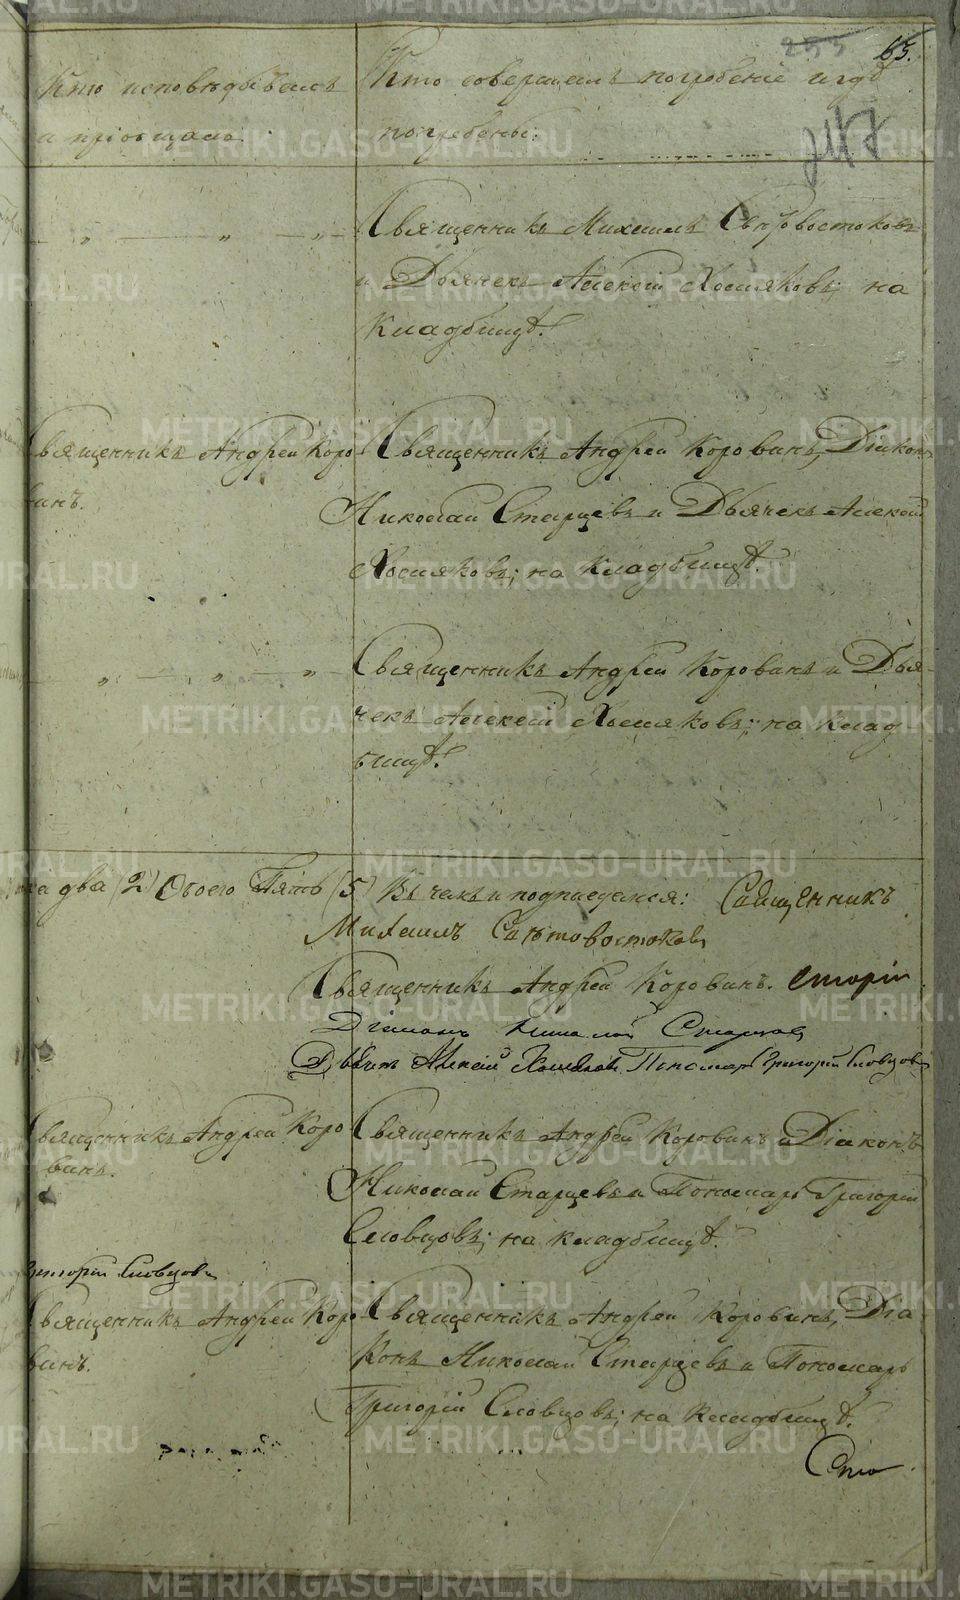 255 65.
Кто исповѣдывалъ
и пріобщалъ.
Кто совершалъ погребеніе и гдѣ
погребены.
247
Священникъ Михаилъ Свѣтовостоковъ
и Дьячекъ Алексѣй Хосяковъ; на
кладбищѣ.
Священникъ Андрей Коро
винъ.
Священникъ Андрей Коровинъ, Діаконъ
Николай Старцевъ и Дьячекъ Алексѣй
Хосяковъ; на кладбищѣ.
Священникъ Андрей Коровинъ и Дья-
чекъ Алексѣй Хосяковъ; на клад
бищѣ.
два (2) Обоего Пять (5) Въ чемъ и подписуемся: Священникъ
Михаилъ Свѣтовостоковъ
Священникъ Андрей Коровинъ.
Діаконъ Николай Старцовъ
Дьячекъ Алексѣй Пономарь Григорій Словцовъ
Священникъ Андрей Коро
винъ.
Священникъ Андрей Коровинъ и Діаконъ
Николай Старцевъ и Пономарь Григорій
Словцовъ; на кладбищѣ.
Григорій Словцовъ
Священникъ Андрей Коро
винъ.
Священникъ Андрей Коровинъ, Діа
конъ Николай Старцевъ и Пономарь
Григорій Словцовъ; на кладбищѣ.
METRIKI.GASO-URAL.RU